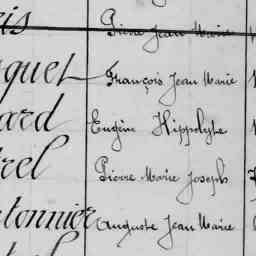 is Pierre Jean Marie
quet François Jean Marie
ard Eugène Hippolyte
rel Pierre Marie Joseph
tonnier Auguste Jean Marie